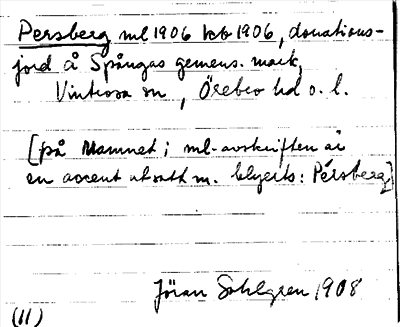 Persberg ml 1906 kb 1906, donations-
jord å Spångas gemens. mark,
Vintrosa sn, Örebro hd o. l.
[på namnet i ml-avskriften är
en accent utsatt m. blyerts: Pérsberg]
Jöran Sahlgren 1908
(11)